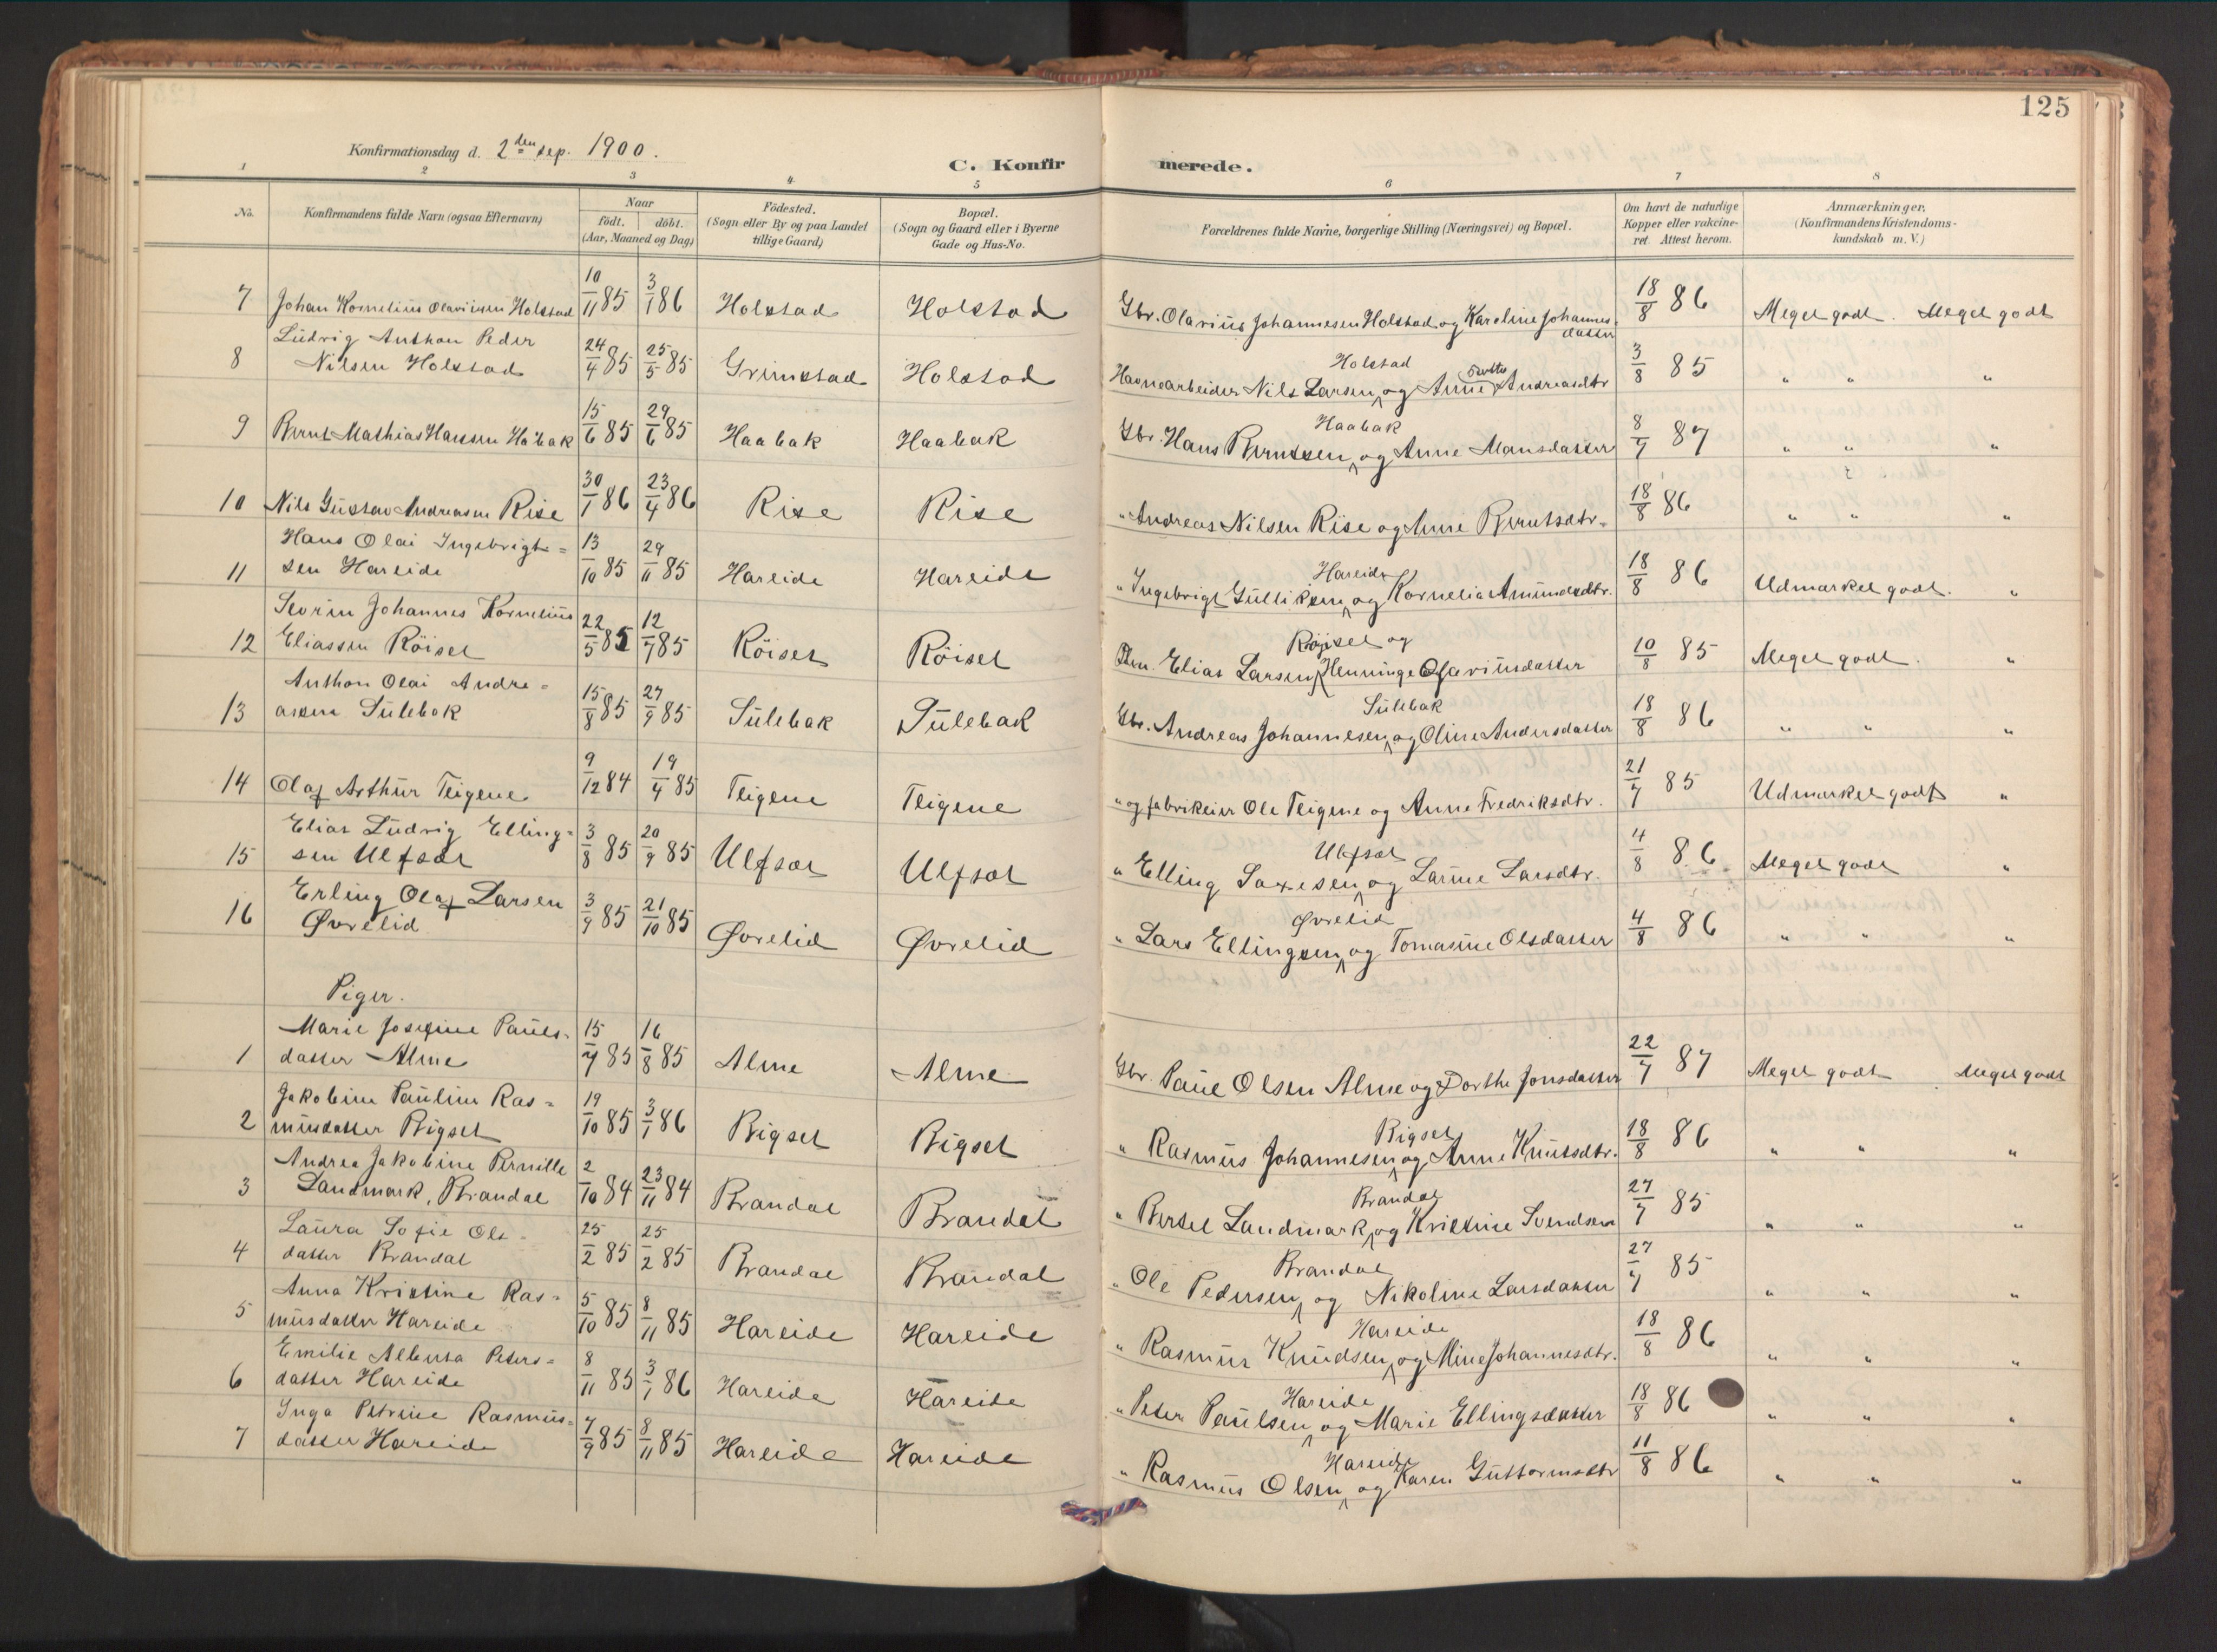 125
Konfirmationsdag d. 2den sep. 1900.
C. Konfirmerede.
1 2 3 4 5 6 7 8
No.
Konfirmandens fulde Navn (ogsaa Efternavn)
Naar
födt. döbt.
(Aar, Maaned og Dag)
Födested.
(Sogn eller By og paa Landet
tillige Gaard)
Bopæl.
(Sogn og Gaard eller i Byerne
Gade og Hus-No.
Forældrenes fulde Navne, borgerlige Stilling (Næringsvei) og Bopæl.
Om havt de naturlige
Kopper eller vakcine-
ret. Attest herom.
Anmærkninger,
(Konfirmandens Kristendoms-
kundskab m. V.)
7 Johan Kornelius Olaviusen Holstad 10/11 85 3/1 86 Holstad Holstad Gbr. Olavius Johannesen Holstad og Karoline Johannes-
datter 18/8 86 Meget godt. Meget godt
Ludvig Anthon Peder
8 Nilsen Holstad 24/4 85 25/5 85 Grimstad Holstad Havnearbeider Nils Larsen Holstad og Anne Andreasdtr 3/8 85 " " "
9 Bernt Mathias Hansen Habak 15/6 85 29/6 85 Haabak Haabak Gbr. Hans Berntsen Haabak og Anne Mansdatter 8/7 87 " " "
10 Nils Gustav Andreasen Rise 30/1 86 23/4 86 Rise Rise " Andreas Nilsen Rise og Anne Berntsdtr. 18/8 86 " " "
Hans Olai Ingebrigt-
11 sen Hareide 13/10 85 29/11 85 Hareide Hareide " Ingebrigt Gulliksen Hareide og Kornelia Amundsdtr. 18/8 86 Udmærket godt. "
Severin Johannes Kornelius
12 Eliassen Röiset 22/5 85 12/7 85 Röiset Röiset Elias Larsen Röiset og Henninge Olaviusdatter 10/8 85 Meget godt. "
Anthon Olai Andre-
13 assen Sulebak 15/8 85 27/9 85 Sulebak Sulebak Gbr. Andreas Johannesen Sulebak og Oline Andersdatter 18/8 86 " " "
14 Olaf Arthur Teigene 9/12 84 19/4 85 Teigene Teigene " og fabrikeier Ole Teigene og Anne Fredriksdtr. 21/7 85 Udmærket godt "
Elias Ludvig Elling-
15 sen Ulfsæt 3/8 85 20/9 85 Ulfsæt Ulfsæt " Elling Saxesen Ulfsæt og Larine Larsdtr. 4/8 86 Meget godt "
Erling Olaf Larsen
16 Øvrelid 3/9 85 21/10 85 Øvrelid Øvrelid " Lars Ellingsen Øvrelid og Tomasine Olsdatter 4/8 86 " " "
Piger.
Marie Josefine Pauls-
1 datter Alme 15/7 85 16/8 85 Alme Alme Gbr. Paul Olsen Alme og Dorthe Jonsdatter 22/7 87 Meget godt. Meget godt
Jakobine Pauline Ras-
2 musdatter Bigset 19/10 85 3/1 86 Bigset Bigset " Rasmus Johannesen Bigset og Anne Knutsdtr. 18/8 86 " " "
Andrea Jakobine Pernille
3 Landmark, Brandal 2/10 84 23/11 84 Brandal Brandal " Bertel Landmark Brandal og Kristine Svendsen 27/7 85 " " "
Laura Sofie Ols-
4 datter Brandal 25/2 85 25/2 85 Brandal Brandal " Ole Pedersen Brandal og Nikoline Larsdatter 27/7 85 " " "
Anna Kristine Ras-
5 musdatter Hareide 5/10 85 8/11 85 Hareide Hareide " Rasmus Knudsen Hareide og Mine Johannesdtr. 18/8 86 " " "
Emilie Alberta Peters-
6 datter Hareide 8/11 85 3/1 86 Hareide Hareide " Peter Paulsen Hareide og Marie Ellingsdatter 18/8 86 " " "
Inga Petrine Rasmus-
7 datter Hareide 7/9 85 8/11 85 Hareide Hareide " Rasmus Olsen Hareide og Karen Guttormsdtr 11/8 86 " " "